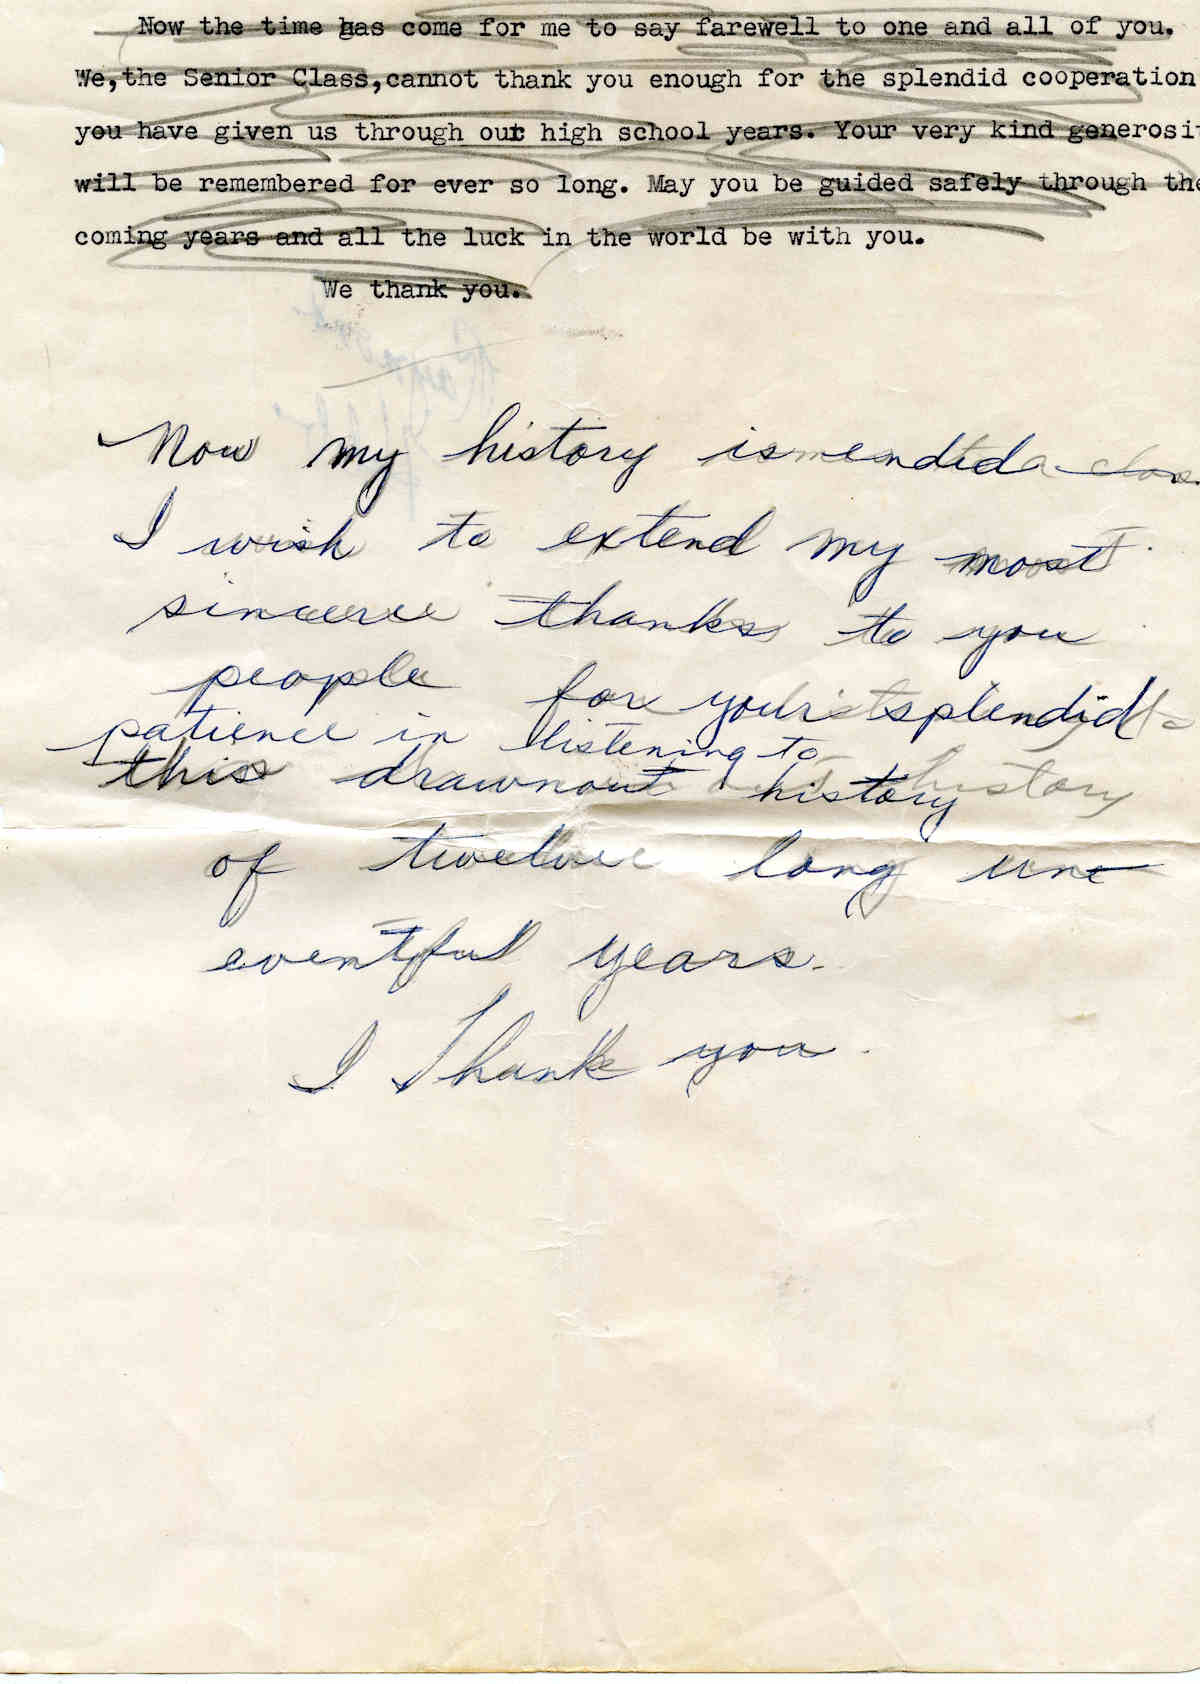 Now the time has come for me to say farewell to one and all of you.
We,the Senior Class,cannot thank you enough for the splendid cooperation
you have given us through out high school years. Your very kind generosi
will be remembered for ever so long. May you be guided safely through the
coming years and all the luck in the world be with you.
We thank you.
Now my history is ended
I wish to extend my most
sincere thanks to you
people for your splendid
patience in listening to
this drawnout history
of twelve long un
eventful years.
I Thank you.